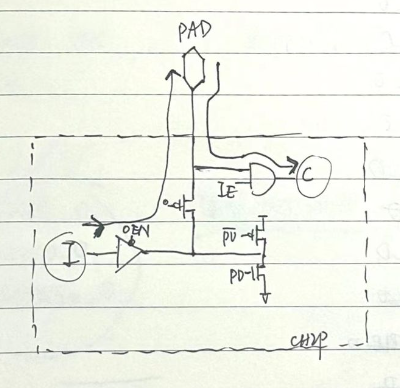 PAD
IE
C
OEN
I
PU
PD
CHIP